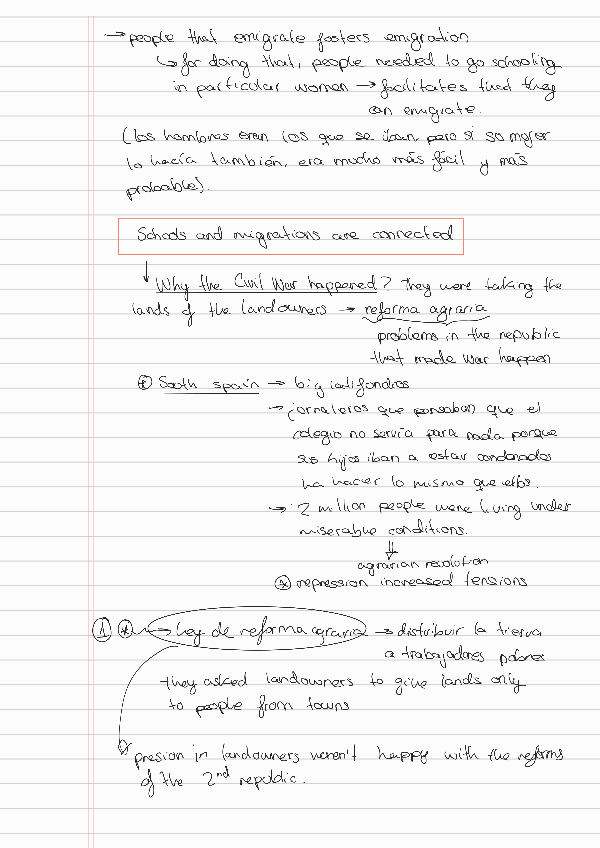 → people that emigrate fosters emigration
↳ for doing that, people needed to go schooling
in particular women → facilitates that they
can emigrate.
(los hombres eran los que se iban, pero si su mujer
lo hacía también, era mucho más fácil y más
probable).
Schools and migrations are connected
↓ Why the Civil War happened? They were taking the
lands of the landowners → reforma agraria
problems in the republic
that made war happen
* South spain → big latifondios
→ jornaleros que pensaban que el
colegio no servía para nada porque
sus hijos iban a estar condenados
ha hacer lo mismo que ellos.
→ 2 million people were living under
miserable conditions.
⇓
agrarian resolution
* repression increased tensions
1 * → Ley de reforma agraria → distribuir la tierra
a trabajadores pobres
they asked landowners to give lands only
to people from towns
presion in landowners weren't happy with the reforms
of the 2nd republic.